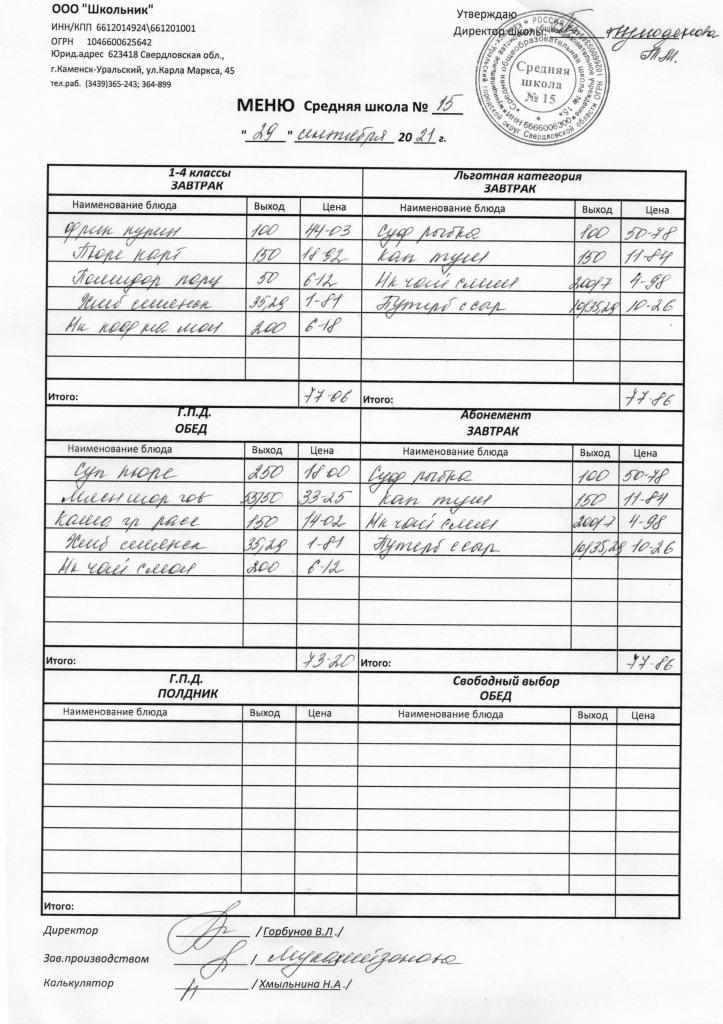 ООО "Школьник"
ИНН/КПП 6612014924\661201001
ОГРН 1046600625642
Юрид.адрес 623418 Свердловская обл.,
г.Каменск-Уральский, ул.Карла Маркса, 45
тел.раб. (3439)365-243; 364-899
Утверждаю
Директор школы:
Т.М.
Средняя
школа
№ 15
МЕНЮ Средняя школа № 15
"29" сентября 2021 г.
1-4 классы
ЗАВТРАК
Льготная категория
ЗАВТРАК
Наименование блюда Выход Цена Наименование блюда Выход Цена
фрик курин 100 44-03 Суф рыбка 100 50-78
Пюре карт 150 18-92 Кап туш 150 11-84
Помидор порц 50 6-12 Нк чай слим 200/7 4-98
Хлеб 35,29 1-81 Бутерб с сыр 10/35,29 10-26
Нк 200 6-18
Итого: 77-06 Итого: 77-86
Г.П.Д.
ОБЕД
Абонемент
ЗАВТРАК
Наименование блюда Выход Цена Наименование блюда Выход Цена
Суп пюре 250 18-00 Суф рыбка 100 50-78
50/50 33-25 Кап туш 150 11-84
Каша гр расс 150 14-02 Нк чай слим 200/7 4-98
Хлеб 35,29 1-81 Бутерб с сыр 10/35,29 10-26
Нк чай 200 6-12
Итого: 73-20 Итого: 77-86
Г.П.Д.
ПОЛДНИК
Свободный выбор
ОБЕД
Наименование блюда Выход Цена Наименование блюда Выход Цена
Итого:
Директор / Горбунов В.Л ./
Зав.производством /
Калькулятор / Хмыльнина Н.А ./